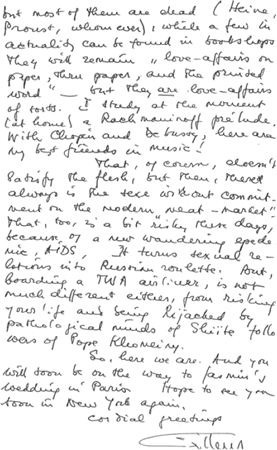 but most of them are dead (Heine,
Proust, whomever), while a few in
actuality can be found in bookshops
they will remain "love-affairs on
paper, thru paper, and the printed
word" — but they are love-affairs
of sorts. I study at the moment
(at home) a Rachmaninoff prelude.
With Chopin and Debussy, here are
my best friends in music!
That, of course, doesn't
satisfy the flesh, but then, there's
always is the sexe without commit-
ment on the modern "meat-market"
That, too, is a bit risky these days,
because of a new wandering epede
mic, AIDS. It turns sexual re-
lations into Russian roulette. But,
boarding a TWA airliner, is not
much different either, from risking
your life and being hijacked by
pathological minds of Shiite follo
wers of Pope Khomeiny.
So, here we are. And you
will soon be on the way to Jasmin's
wedding in Paris. Hope to see you
soon in New York again.
cordial greetings